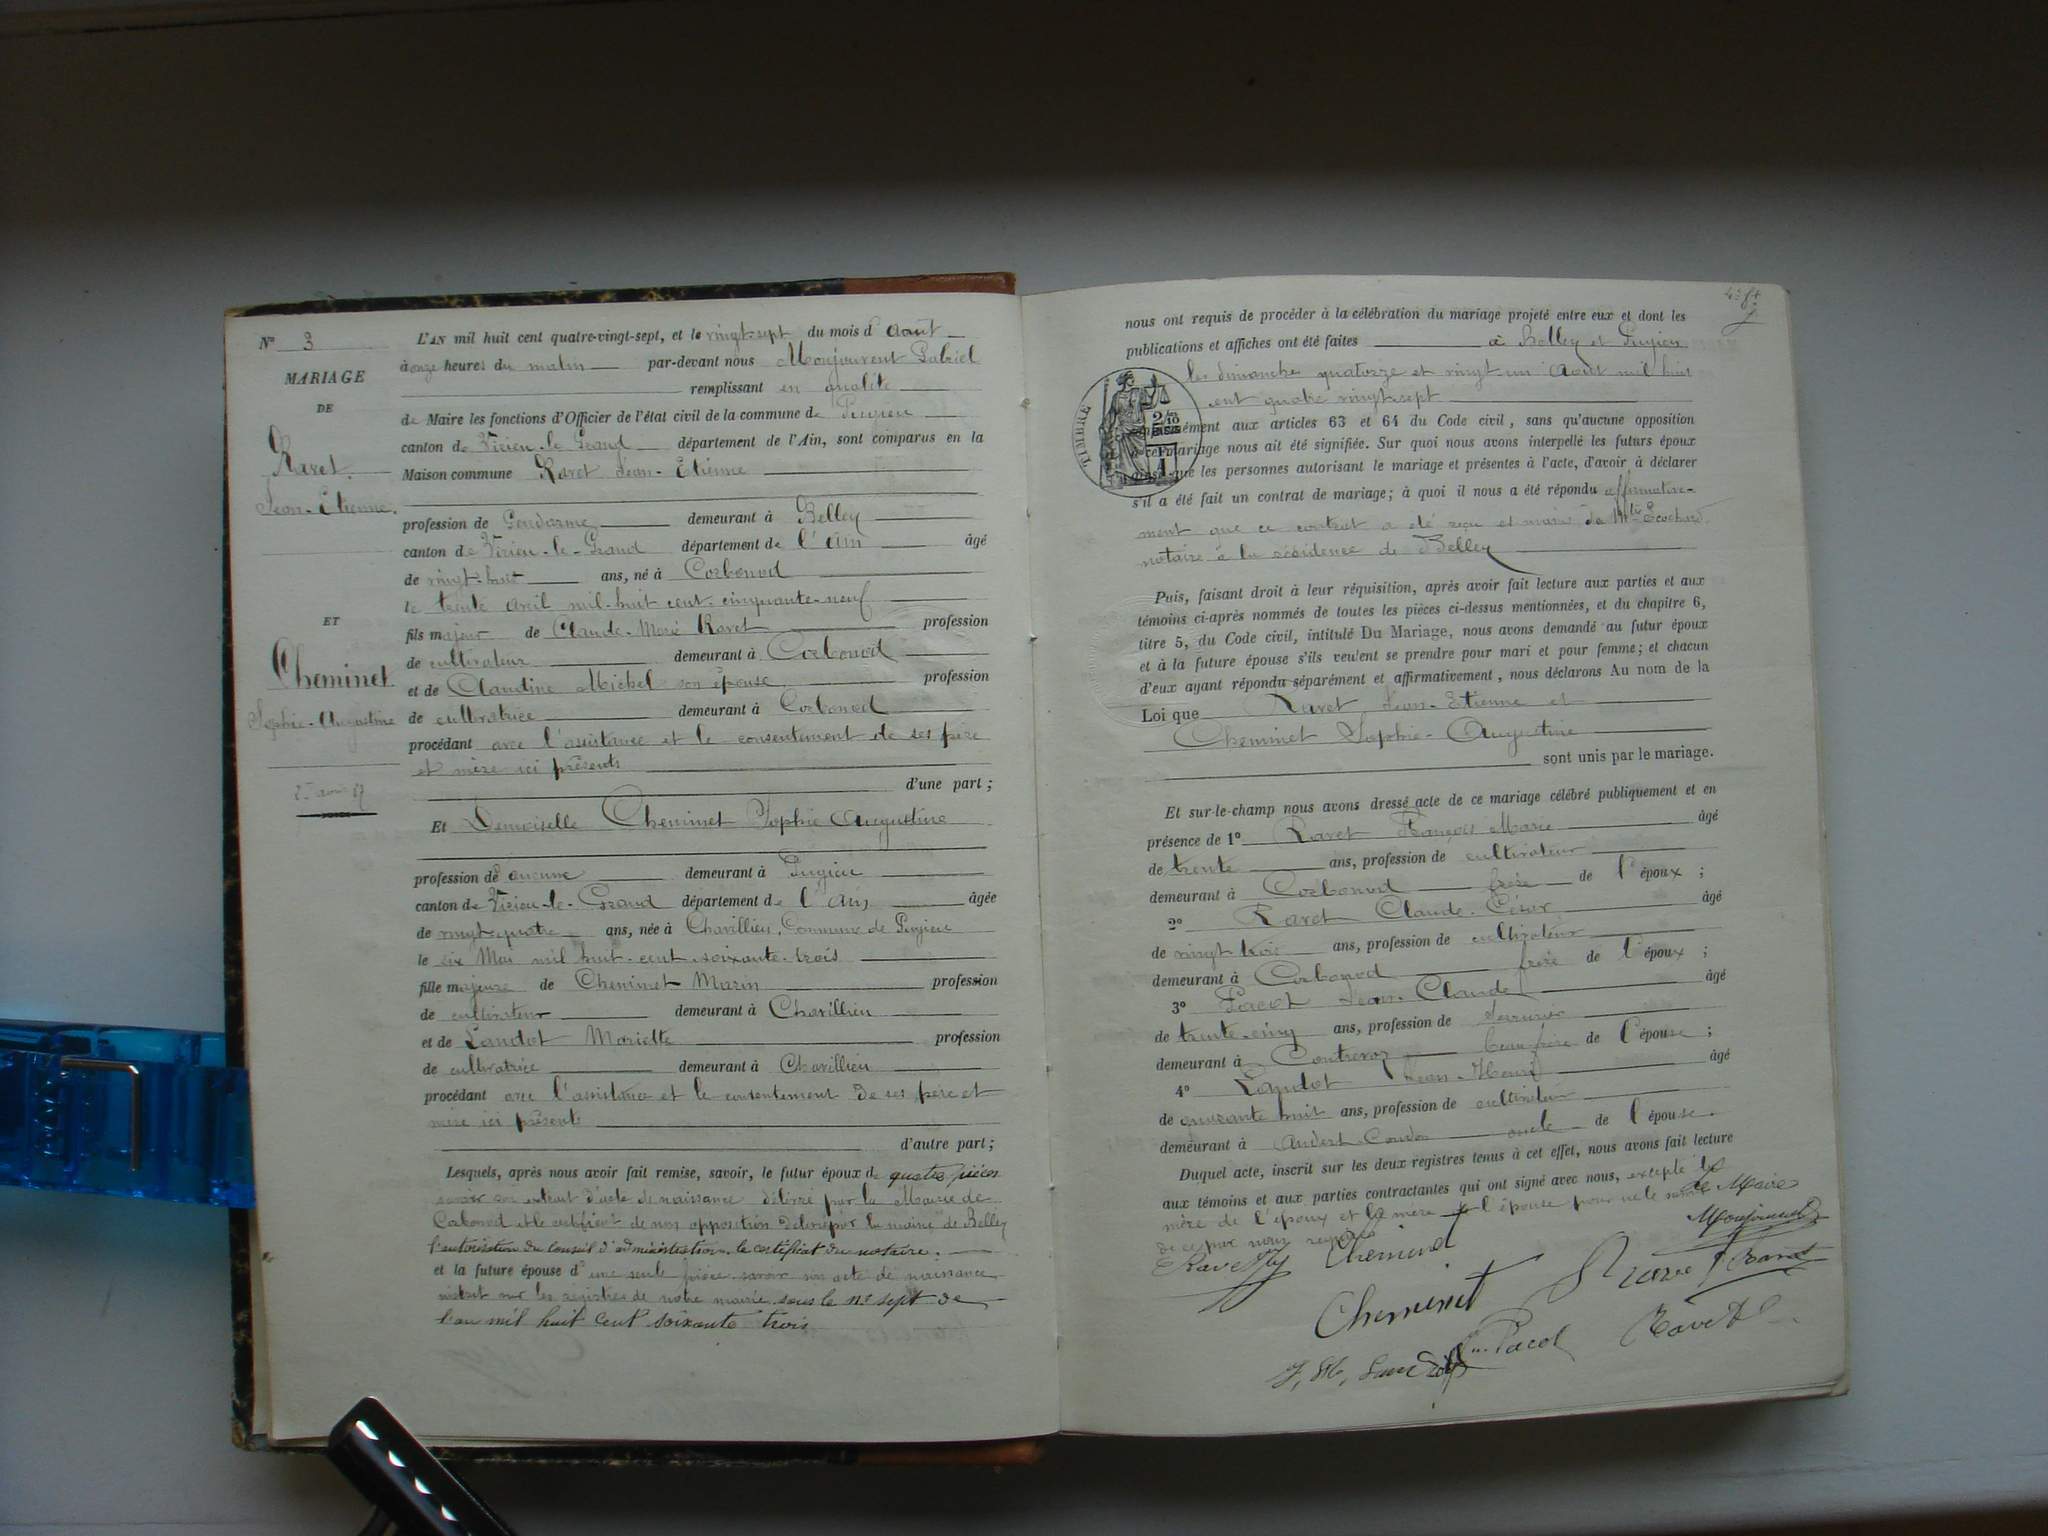 N° 3
MARIAGE
DE
Ravet
Jean-Etienne.
ET
Cheminet
Sophie-Augustine
L'AN mil huit cent quatre-vingt-sept, et le vingt-sept du mois d'Août
à onze heures du matin par-devant nous Monjouvent Gabriel
remplissant en qualité
de Maire les fonctions d'Officier de l'état civil de la commune de Pugieu
canton de Virieu-le-Grand département de l'Ain, sont comparus en la
Maison commune Ravet Jean-Etienne
profession de Gendarme demeurant à Belley
canton de Virieu-le-Grand département de l'Ain âgé
de vingt-huit ans, né à Corbonod
le trente avril mil-huit cent-cinquante-neuf
fils majeur de Claude-Marie Ravet profession
de cultivateur demeurant à Corbonod
et de Claudine Michel son épouse profession
de cultivatrice demeurant à Corbonod
procédant avec l'assistance et le consentement de ses père
et mère ici présents
d'une part ;
Et Demoiselle Cheminet Sophie Augustine
profession de aucune demeurant à Pugieu
canton de Virieu-le-Grand département de l'Ain âgée
de vingt-quatre ans, née à Chavillieu, Commune de Pugieu
le six Mai mil huit-cent-soixante-trois
fille majeure de Cheminet Marin profession
de cultivateur demeurant à Chavillieu
et de Landot Mariette profession
de cultivatrice demeurant à Chavillieu
procédant avec l'assistance et le consentement de ses père et
mère ici présents
d'autre part ;
Lesquels, après nous avoir fait remise, savoir, le futur époux de quatre pièces
savoir son extrait d'acte de naissance délivré par la Mairie de
Corbonod et le certificat de non opposition délivré par la mairie de Belley
l'autorisation du Conseil d'administration, le certificat du notaire.
et la future épouse d'une seule pièce savoir son acte de naissance
inscrit sur les registres de notre mairie sous le n° sept de
l'an mil huit cent soixante trois
nous ont requis de procéder à la célébration du mariage projeté entre eux et dont les
publications et affiches ont été faites à Belley et Pugieu
les dimanches quatorze et vingt un Août mil huit
cent quatre vingt-sept
TIMBRE
conformément aux articles 63 et 64 du Code civil, sans qu'aucune opposition
à ce mariage nous ait été signifiée. Sur quoi nous avons interpellé les futurs époux
ainsi que les personnes autorisant le mariage et présentes à l'acte, d'avoir à déclarer
s'il a été fait un contrat de mariage; à quoi il nous a été répondu affirmative-
ment que ce contrat a été reçu notaire à la résidence de Belley
Puis, faisant droit à leur réquisition, après avoir fait lecture aux parties et aux
témoins ci-après nommés de toutes les pièces ci-dessus mentionnées, et du chapitre 6,
titre 5, du Code civil, intitulé Du Mariage, nous avons demandé au futur époux
et à la future épouse s'ils veulent se prendre pour mari et pour femme; et chacun
d'eux ayant répondu séparément et affirmativement, nous déclarons Au nom de la
Loi que Ravet Jean-Etienne et
Cheminet Sophie-Augustine
sont unis par le mariage.
Et sur-le-champ nous avons dressé acte de ce mariage célébré publiquement et en
présence de 1° Ravet François Marie âgé
de trente ans, profession de cultivateur
demeurant à Corbonod frère de l'époux ;
2° Ravet Claude-César âgé
de vingt trois ans, profession de cultivateur
demeurant à Corbonod frère de l'époux ;
3° Pacot Jean-Claude âgé
de trente-cinq ans, profession de
demeurant à Contrevoz beau-frère de l'épouse ;
4° Landot Jean-Henri âgé
de quarante huit ans, profession de cultivateur
demeurant à Andert-Condon oncle de l'épouse.
Duquel acte, inscrit sur les deux registres tenus à cet effet, nous avons fait lecture
aux témoins et aux parties contractantes qui ont signé avec nous, excepté la
mère de l'époux et la mère de l'épouse pour ne le savoir
de ce par nous requis
Le Maire
Monjouvent
Ravet Cheminet
Cheminet
Ravet
Pacot